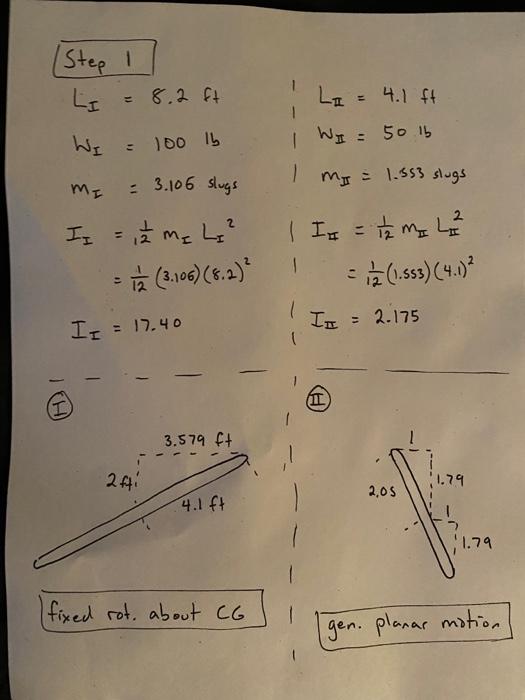 Step 1
L_I = 8.2 ft
W_I = 100 lb
m_I = 3.106 slugs
I_I = 1/12 m_I L_I^2
= 1/12 (3.106)(8.2)^2
I_I = 17.40
L_II = 4.1 ft
W_II = 50 lb
m_II = 1.553 slugs
I_II = 1/12 m_II L_II^2
= 1/12 (1.553)(4.1)^2
I_II = 2.175
I
3.579 ft
2 ft
4.1 ft
fixed rot. about CG
II
1
1.79
2.05
1
1.79
gen. planar motion